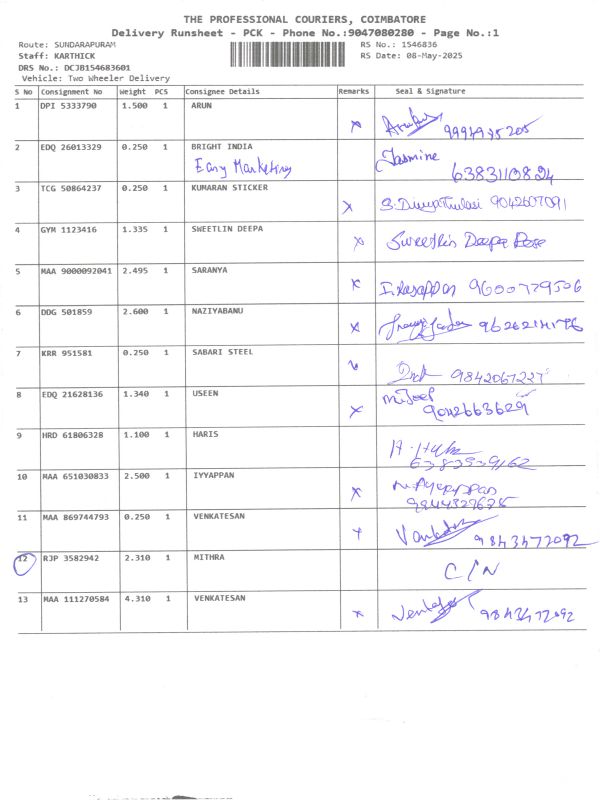 THE PROFESSIONAL COURIERS, COIMBATORE
Delivery Runsheet - PCK - Phone No.:9047080280 - Page No.:1
Route: SUNDARAPURAM RS No.: 1546836
Staff: KARTHICK RS Date: 08-May-2025
DRS No.: DCJB154683601
Vehicle: Two Wheeler Delivery
S No Consignment No Weight PCS Consignee Details Remarks Seal & Signature
1 DPI 5333790 1.500 1 ARUN x
2 EDQ 26013329 0.250 1 BRIGHT INDIA Jasmine
Easy Marketing 6383110824
3 TCG 50864237 0.250 1 KUMARAN STICKER x 9042607091
4 GYM 1123416 1.335 1 SWEETLIN DEEPA x Sweetlin Deepa
5 MAA 9000092041 2.495 1 SARANYA x 9600779506
6 DDG 501859 2.600 1 NAZIYABANU x
7 KRR 951581 0.250 1 SABARI STEEL 9842067227
8 EDQ 21628136 1.340 1 USEEN x
9042663629
9 HRD 61806328 1.100 1 HARIS
10 MAA 651030833 2.500 1 IYYAPPAN x
11 MAA 869744793 0.250 1 VENKATESAN x 9843477092
12 RJP 3582942 2.310 1 MITHRA C/N
13 MAA 111270584 4.310 1 VENKATESAN x 9843477092